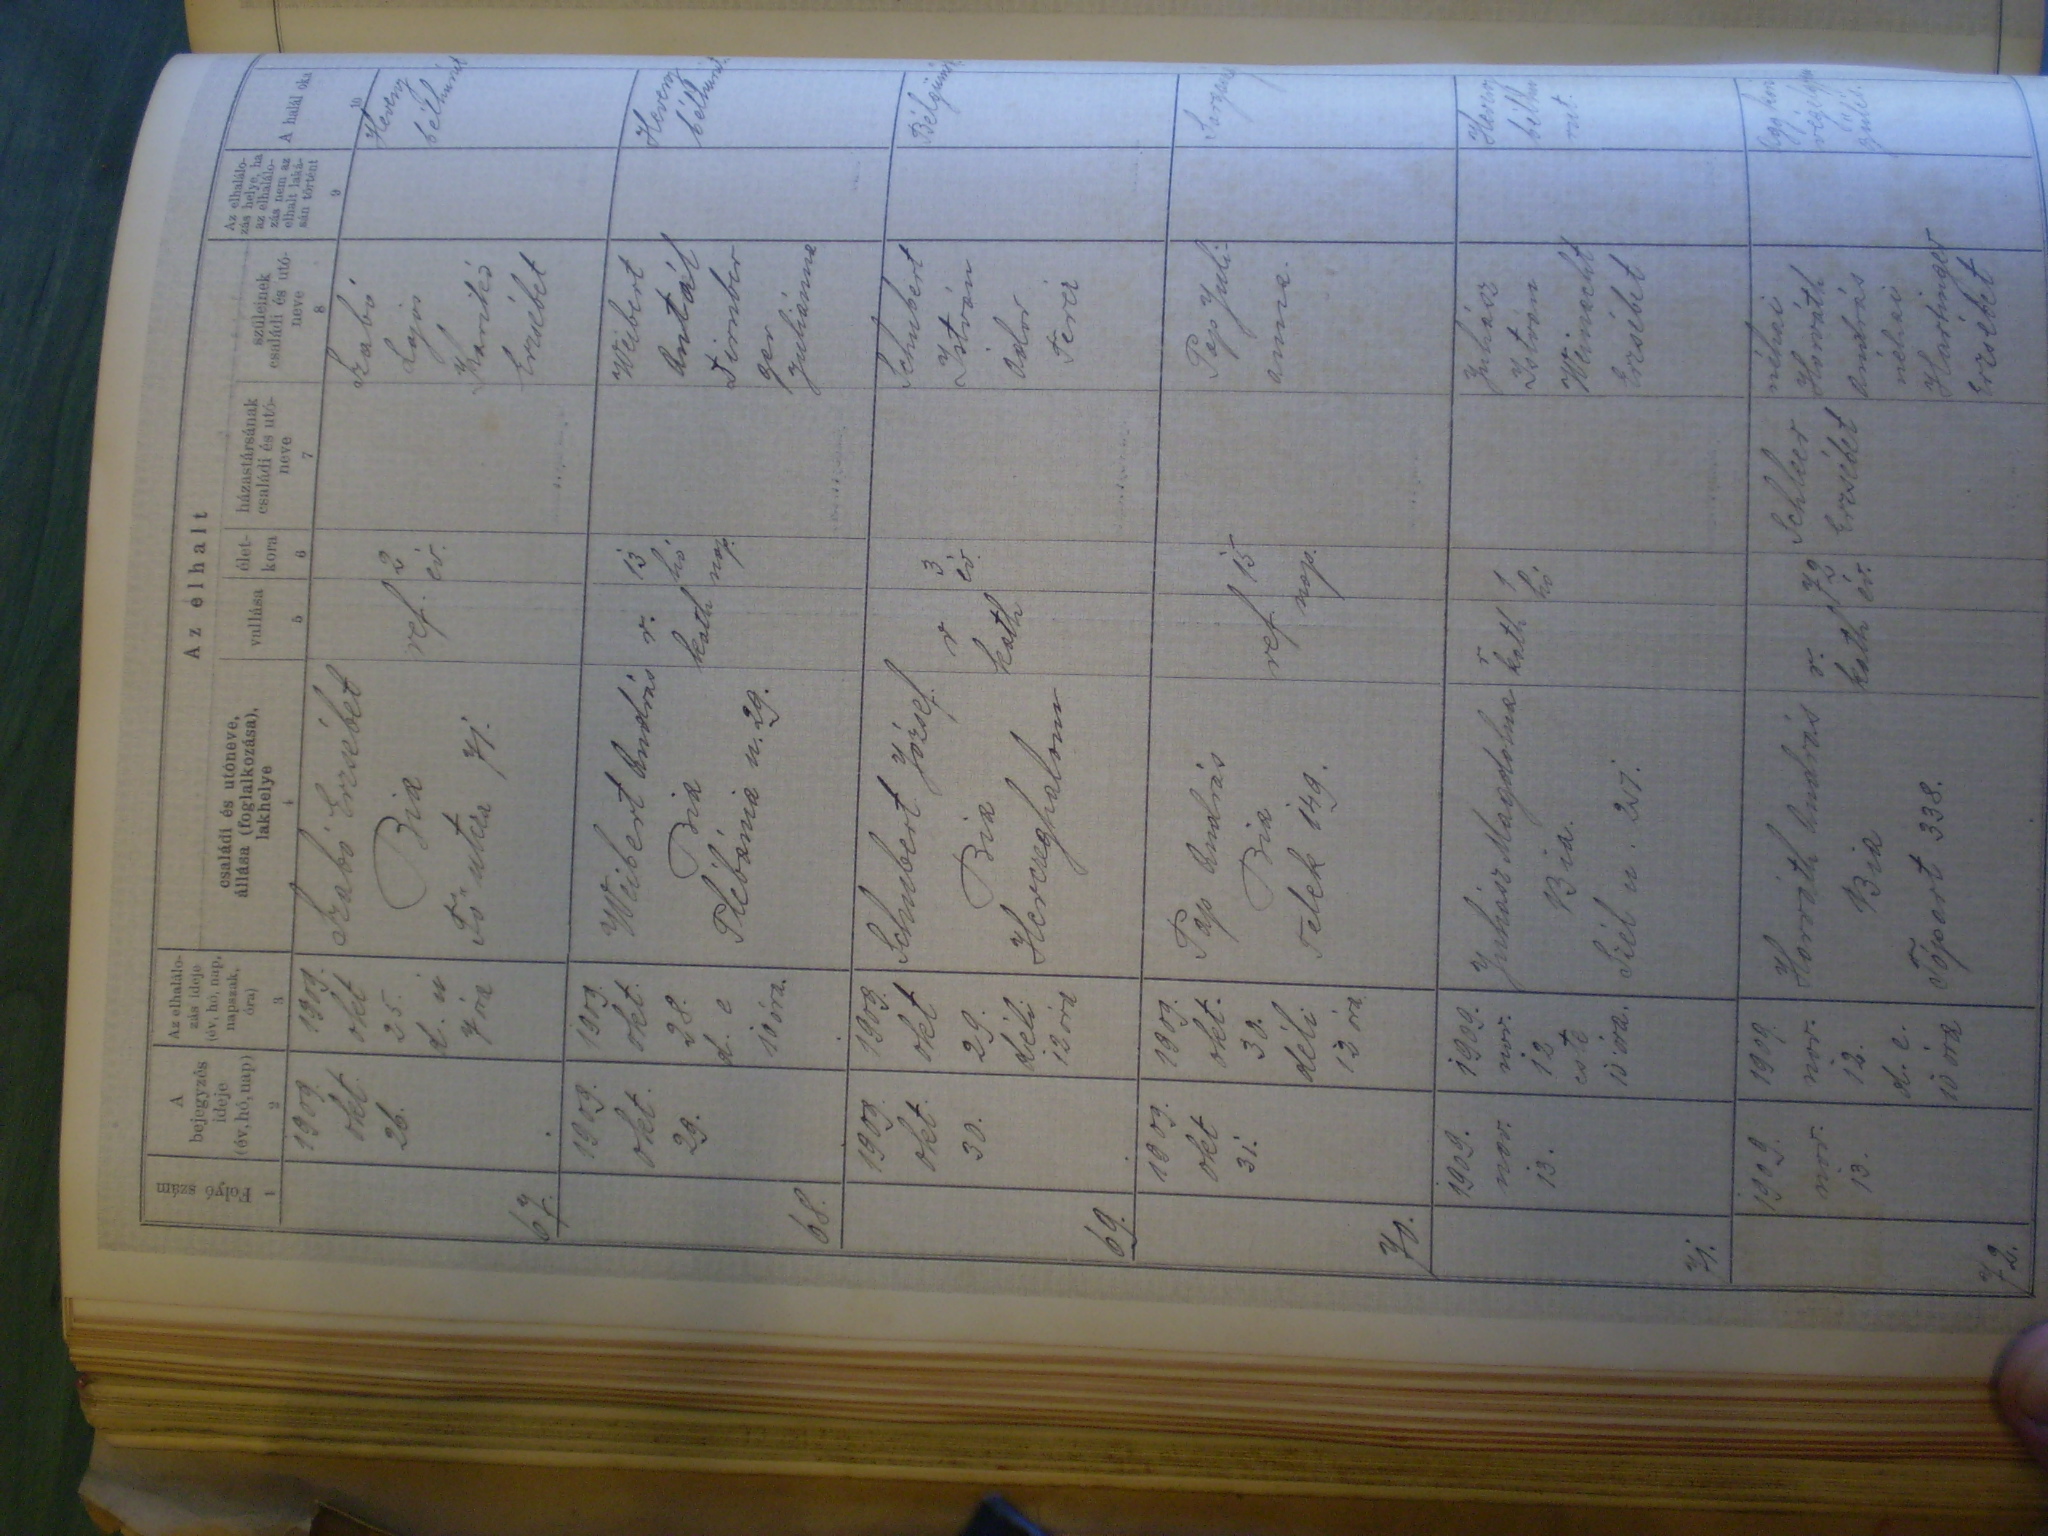 Az elhalt
Folyó szám
A bejegyzés ideje (év, hó, nap)
Az elhalálo-
zás ideje
(év, hó, nap,
napszak,
óra)
családi és utóneve,
állása (foglalkozása),
lakhelye
vallása
élet-
kora
házastársának
családi és utó-
neve
szüleinek
családi és utó-
neve
Az elhalálo-
zás helye, ha
az elhalálo-
zás nem az
elhalt laká-
sán történt
A halál oka
1 2 3 4 5 6 7 8 9 10
67.
1909.
okt.
26.
1909.
okt
25.
d. u
7 óra
Szabó Erzsébet
Bia
Fő utcza 71.
ref.
2
év.
Szabó
Lajos
Erzsébet
Heveny
bélhurut
68.
1909.
okt.
29.
1909.
okt.
28.
d. e
10 óra.
Weibert András
Bia
Plébánia u. 29.
r.
kath
13
hó
nap.
Weibert
Antal
Dirnber
ger
Juliánna
Heveny
bélhurut
69.
1909.
okt.
30.
1909.
okt
29.
déli
12 óra
Schubert József
Bia
Herczeghalom
r
kath
3
év.
Schubert
István
Ador
Teréz
70.
1909.
okt
31.
1909.
okt.
30.
déli
12 óra
Pap András
Bia
Telek 149.
ref
15
nap.
Pap Juli
anna.
71.
1909.
nov.
13.
1909.
nov.
12
este
10 óra.
Juhász Magdolna
Bia.
Szél u. 251.
r
kath
1
hó
Juhász
István
Weinacht
Erzsébet
Heveny
bélhu
rut.
72.
1909.
nov.
13.
1909.
nov.
12.
d. e.
10 óra
Horváth András
Bia
Tópart 338.
r.
kath
72
év.
Schleer
Erzsébet
néhai
Horváth
András
néhai
Hartinger
Erzsébet